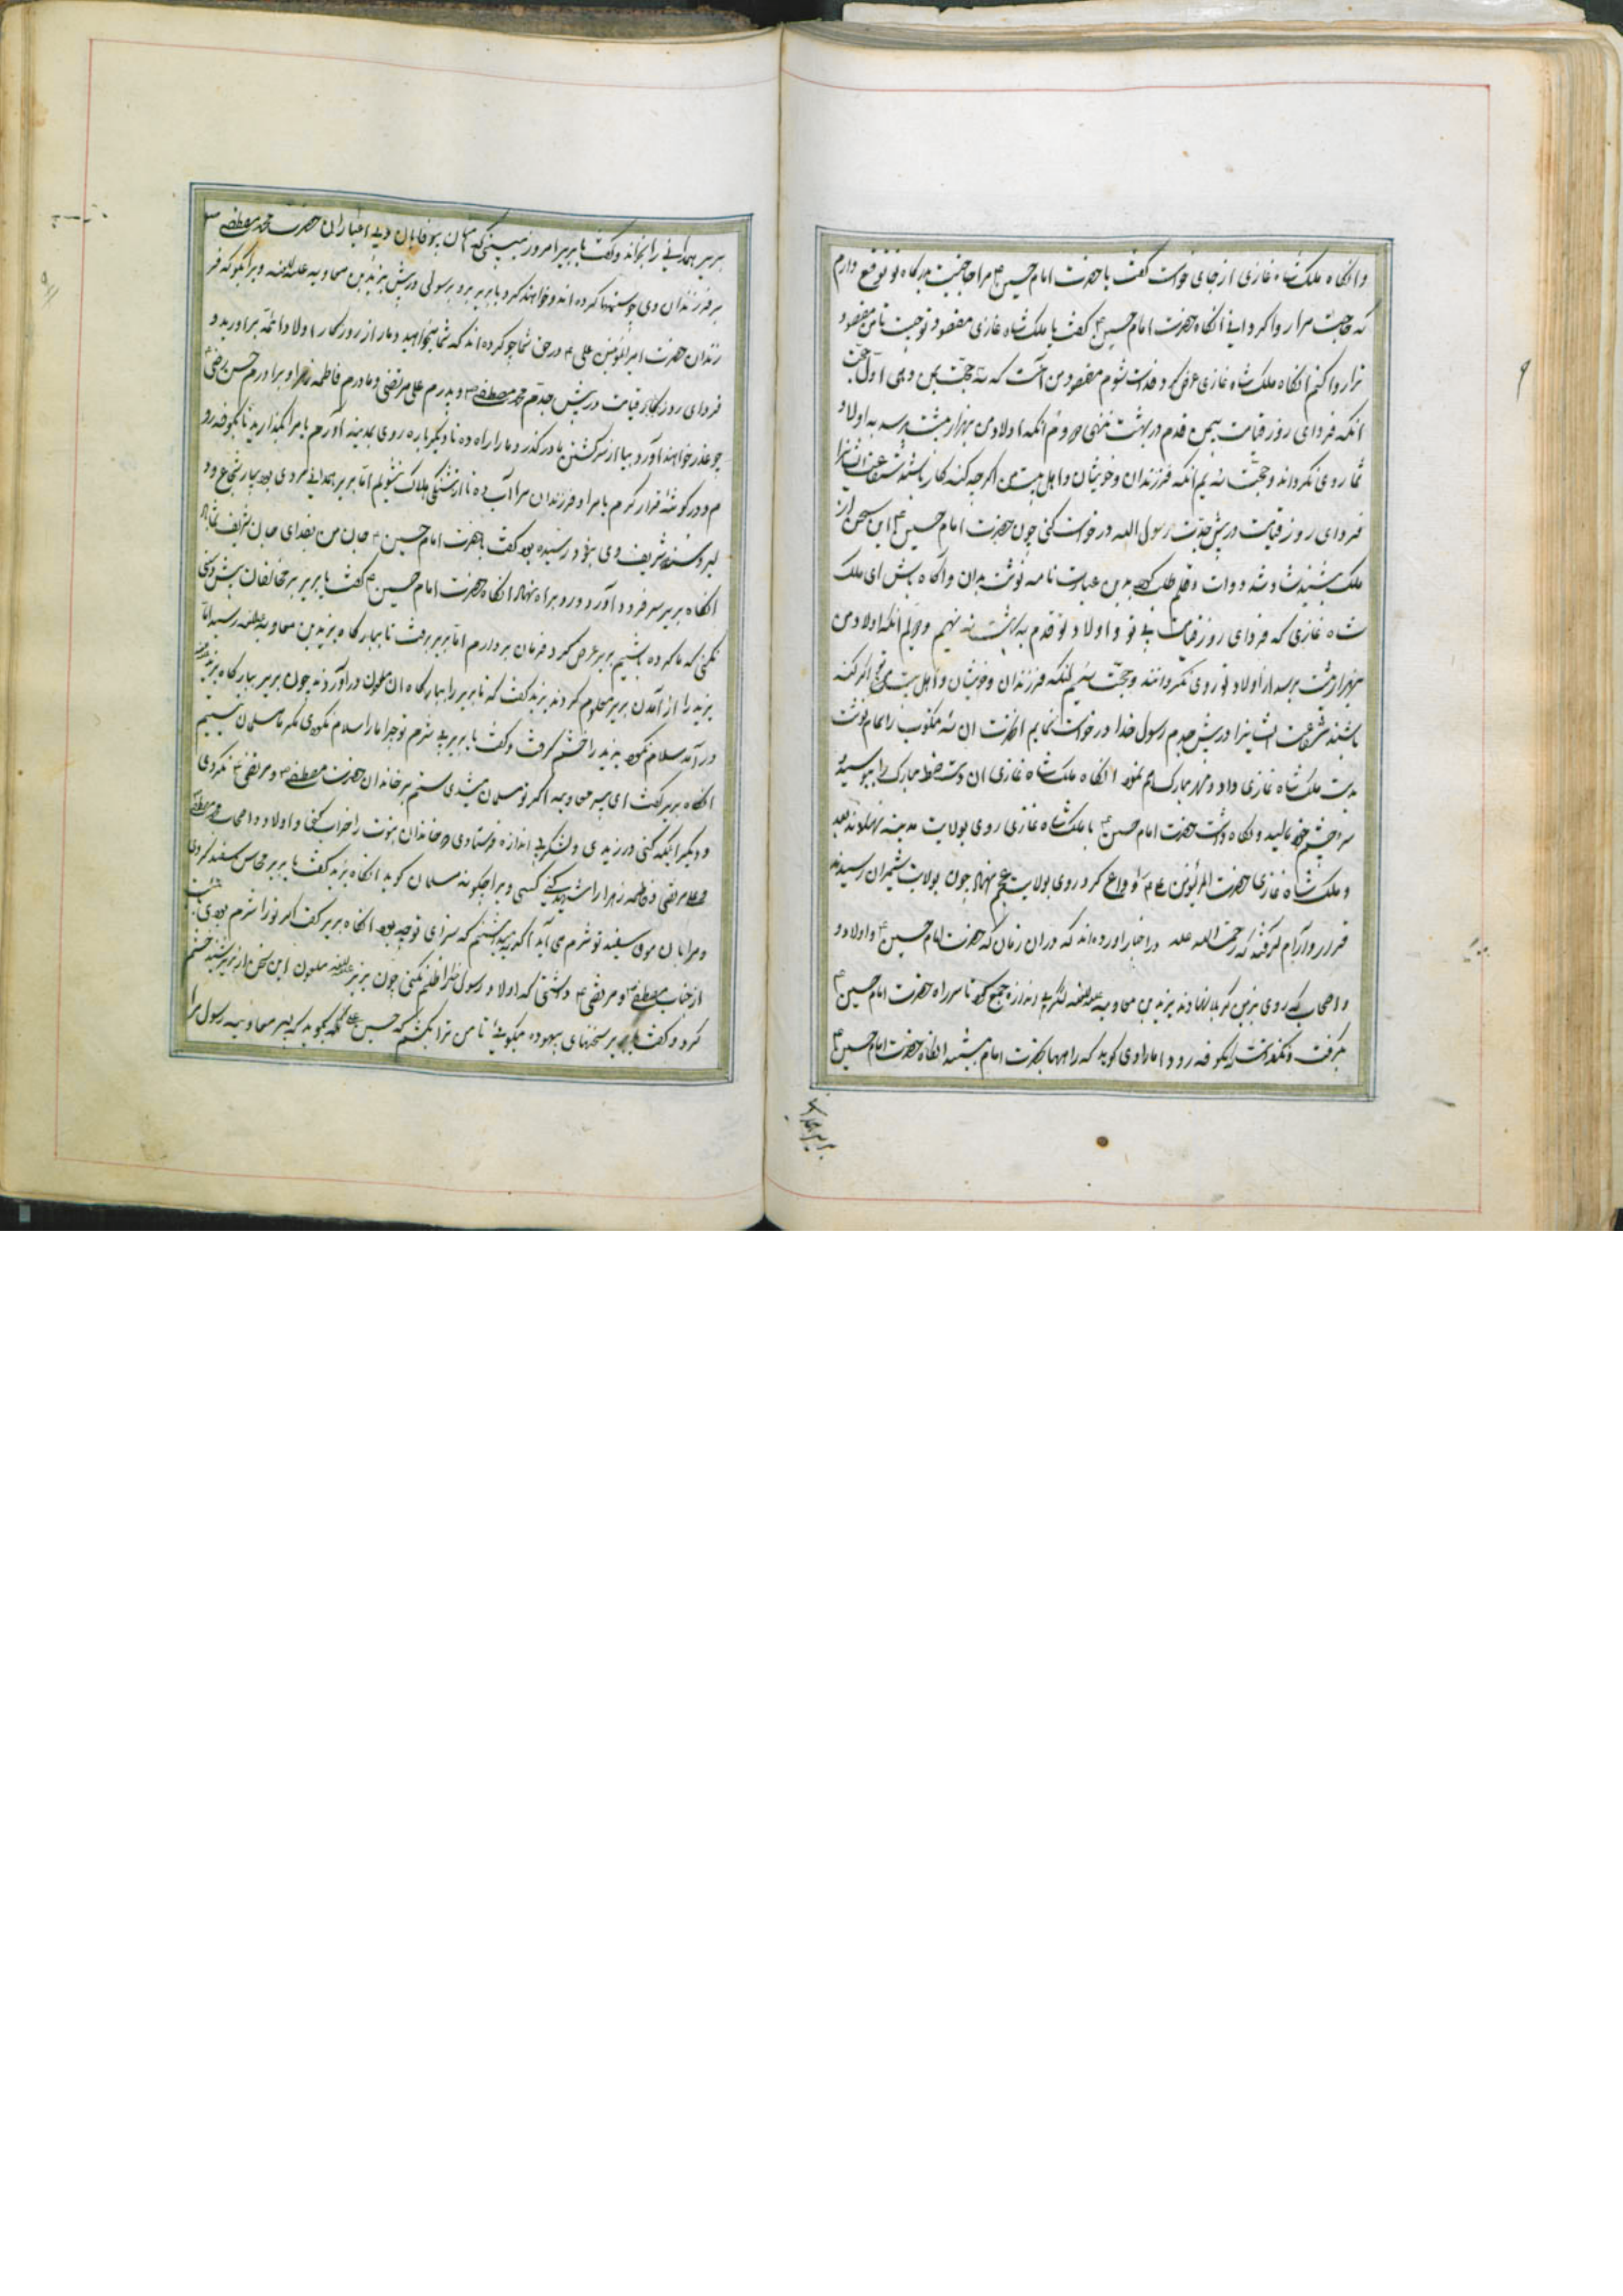 وانگاه ملک شاه غازی از جای خواست گفت یا حضرت امام حسین ع مرا حاجتیست بدرگاه تو توقع دارم
که حاجت مرا روا کردانی انگاه حضرت امام حسین ع گفت یا ملک شاه غازی مقصود تو چیست تا من مقصود
ترا روا کنم انگاه ملک شاه غازی عرض کرد فدات شوم مقصود من آنست که سه حجت بمن دهی اول حجت
انکه فردای روز قیامت بیمن قدم در بهشت ننهی دوم انکه اولاد من بهزار پشت برسد به اولاد
شما روی نکرداند و حجت سیم انکه فرزندان و خویشان و اهل بیت من اگرچه کنه کار باشند شفاعت انرا
فردای روز قیامت در پیش جدت رسول الله درخواست کنی چون حضرت امام حسین ع این سخن از
ملک بشنید شاد شد و دوات و قلم طلب کرد بدین عبارت نامه نوشت بدان و آگاه باش ای ملک
شاه غازی که فردای روز قیامت بی تو و اولاد تو قدم به بهشت ننهیم و دویم انکه اولاد من
بهزار پشت برسد از اولاد تو روی نکردانند و حجت سیم انکه فرزندان و خویشان و اهل بیت اگر کنه
باشند شفاعت ایشانرا در پیش جدم رسول خدا درخواست نمایم انحضرت ان سه مکتوب را تمام نوشت
بدست ملک شاه غازی داد و مهر مبارک نمود انگاه ملک شاه غازی ان دست خط مبارک را ببوسید
بر چشم خود مالید و نگاه داشت حضرت امام حسین ع با ملک شاه غازی روی بولایت مدینه نهادند بعد
و ملک شاه غازی حضرت را وداع کرد روی بولایت عجم نهاد چون بولایت شمیران رسیدند
قرار و آرام گرفتند که رحمة الله علیه در اخبار اورده اند که دران زمان که حضرت امام حسین ع و اولاد و
و اصحاب که روی بزمین کربلا نهادند یزید بن معاویه علیه اللعنه لشکر بی اندازه جمع کرد تا سر راه حضرت امام حسین ع
بگرفت و نگذاشت که بکوفه رود اما راوی گوید که راهها بحضرت امام ببستند انگاه حضرت امام حسین ع
بریر همدانی
بریر همدانی را بخواند و گفت یا بریر امروز می بینی که بی وفایان و بی اعتباران حضرت محمد مصطفی ص
بر فرزندان وی چه ستمها کرده اند و خواهند کرد یا بریر برو برسولی در پیش یزید بن معاویه علیه اللعنه و بر انکو که فر
زندان حضرت امیر المؤمنین علی ع در حق شما چه کرده اند که شما میخواهید دمار از روزگار اولاد ائمه براورید و
فردای روز قیامت در پیش جدم محمد مصطفی ص و پدرم علی مرتضی و مادرم فاطمه زهرا و برادرم حسن رضی
چو عذر خواهند آورد بیا از سر کشتن ما در گذر و ما را راه ده تا دیگر باره روی بمدینه آورم یا مرا بگذارید تا بکوفه رو
م و در گوشه قرار گیرم یا مرا و فرزندان مرا آب ده تا از تشنگی هلاک نشویم اما بریر همدانی مردی بود بسیار شجاع و
و سن شریف وی بنود رسیده بود گفت یا حضرت امام حسین ع جان من بفدای جان شریف شما باد
انگاه بریر سر فرود آورد و رو براه نهاد انگاه حضرت امام حسین ع گفت یا بریر بر مخالفان پیش دستی
نکنی که ما کرده باشیم بریر عرض کرد فرمان بردارم اما بریر برفت تا ببارگاه یزید بن معاویه علیه اللعنه رسید اما
یزید را از آمدن بریر معلوم کردند یزید گفت که تا بریر را ببارگاه ان ملعون درآوردند چون بریر ببارگاه یزید
درآمد سلام نکرد یزید را خشم گرفت و گفت یا بریر بی شرم تو چرا ما را سلام نکردی مگر ما مسلمان نیستیم
انگاه بریر گفت ای پسر معاویه اگر تو مسلمان میبودی ستم بر خاندان حضرت مصطفی ص و مرتضی ع نکردی
و دیگر انکه کینه ورزیدی و لشکر بی اندازه فرستادی و خاندان نبوت را خراب کنی و اولاد و اصحاب مصطفی
و علی مرتضی و فاطمه زهرا را شهید کنی کسی ویرا چگونه مسلمان گوید انگاه یزید گفت یا بریر محاسن سفید کردی
و مرا با ان موی سفید تو شرم می آید اگر نه میدانستم که سزای تو چه بود انگاه بریر گفت اگر ترا شرم بودی
از جناب مصطفی ص و مرتضی ع داشتی که اولاد رسول خدا را ظلم نکنی چون یزید علیه اللعنه ملعون این سخن از بریر شنید خشم
کرد و گفت یا بریر سخنهای بیهوده میگوئی تا من ترا بکشم که حسین گله گوید که پسر معاویه رسول مرا